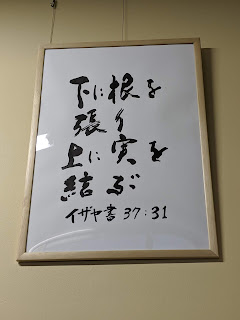 下に根を
張り
上に実を
結ぶ
イザヤ書 37:31